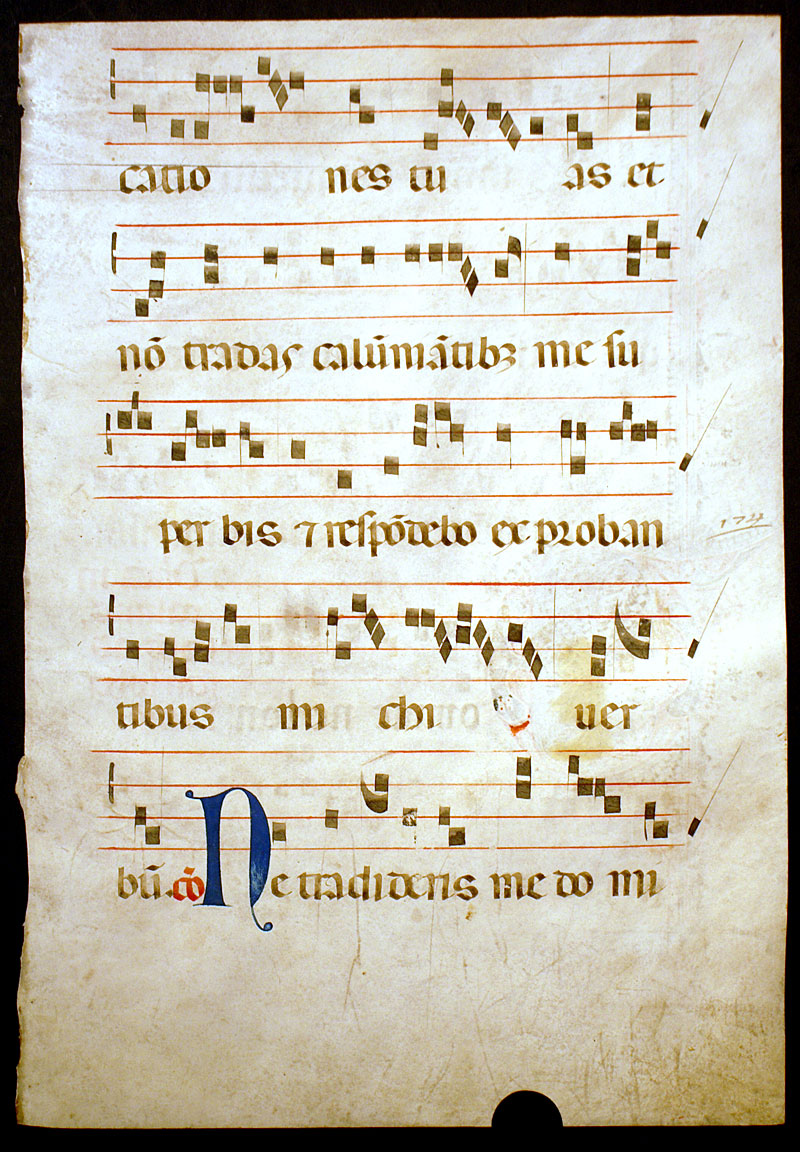 catio nes tu as et
nō tradas calūmātibꝫ me su
per bis ⁊ respōdebo ex proban
tibus mi chi uer
bū. cō Ne tradideris me do mi